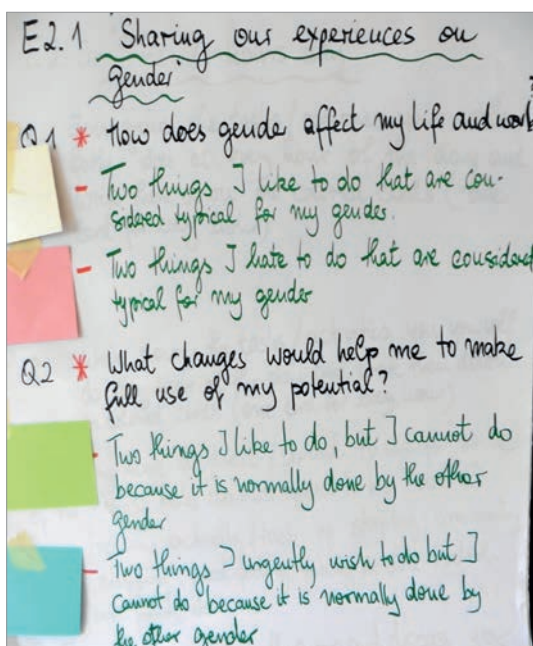 E2.1 Sharing our experiences on
gender
Q1 * How does gender affect my life and work?
- Two things I like to do that are con-
sidered typical for my gender.
- Two things I hate to do that are considered
typical for my gender
Q2 * What changes would help me to make
full use of my potential?
- Two things I like to do, but I cannot do
because it is normally done by the other
gender
- Two things I urgently wish to do but I
cannot do because it is normally done by
the other gender